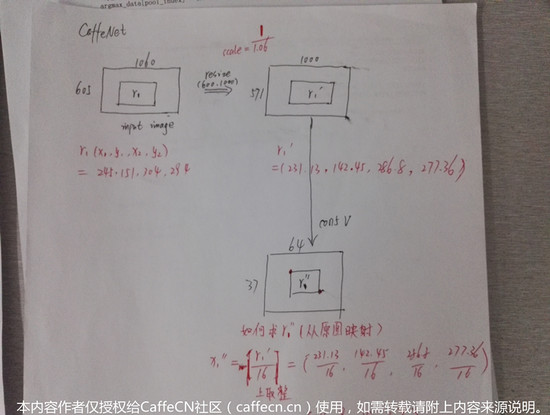 argmax_data[pool_index]
CaffeNet
1060
603
r₁
input image
resize
(600,1000)
scale = 1/1.06
1000
571
r₁'
r₁ (x₁, y₁, x₂, y₂)
= 245.151.304.294
r₁'
= (231.13, 142.45, 286.8, 277.36)
conv5
64
37
r₁''
如何求 r₁'' (从原图映射)
r₁'' = [r₁'/16] = (231.13/16, 142.45/16, 286.8/16, 277.36/16)
上取整
本内容作者仅授权给CaffeCN社区（caffecn.cn）使用，如需转载请附上内容来源说明。